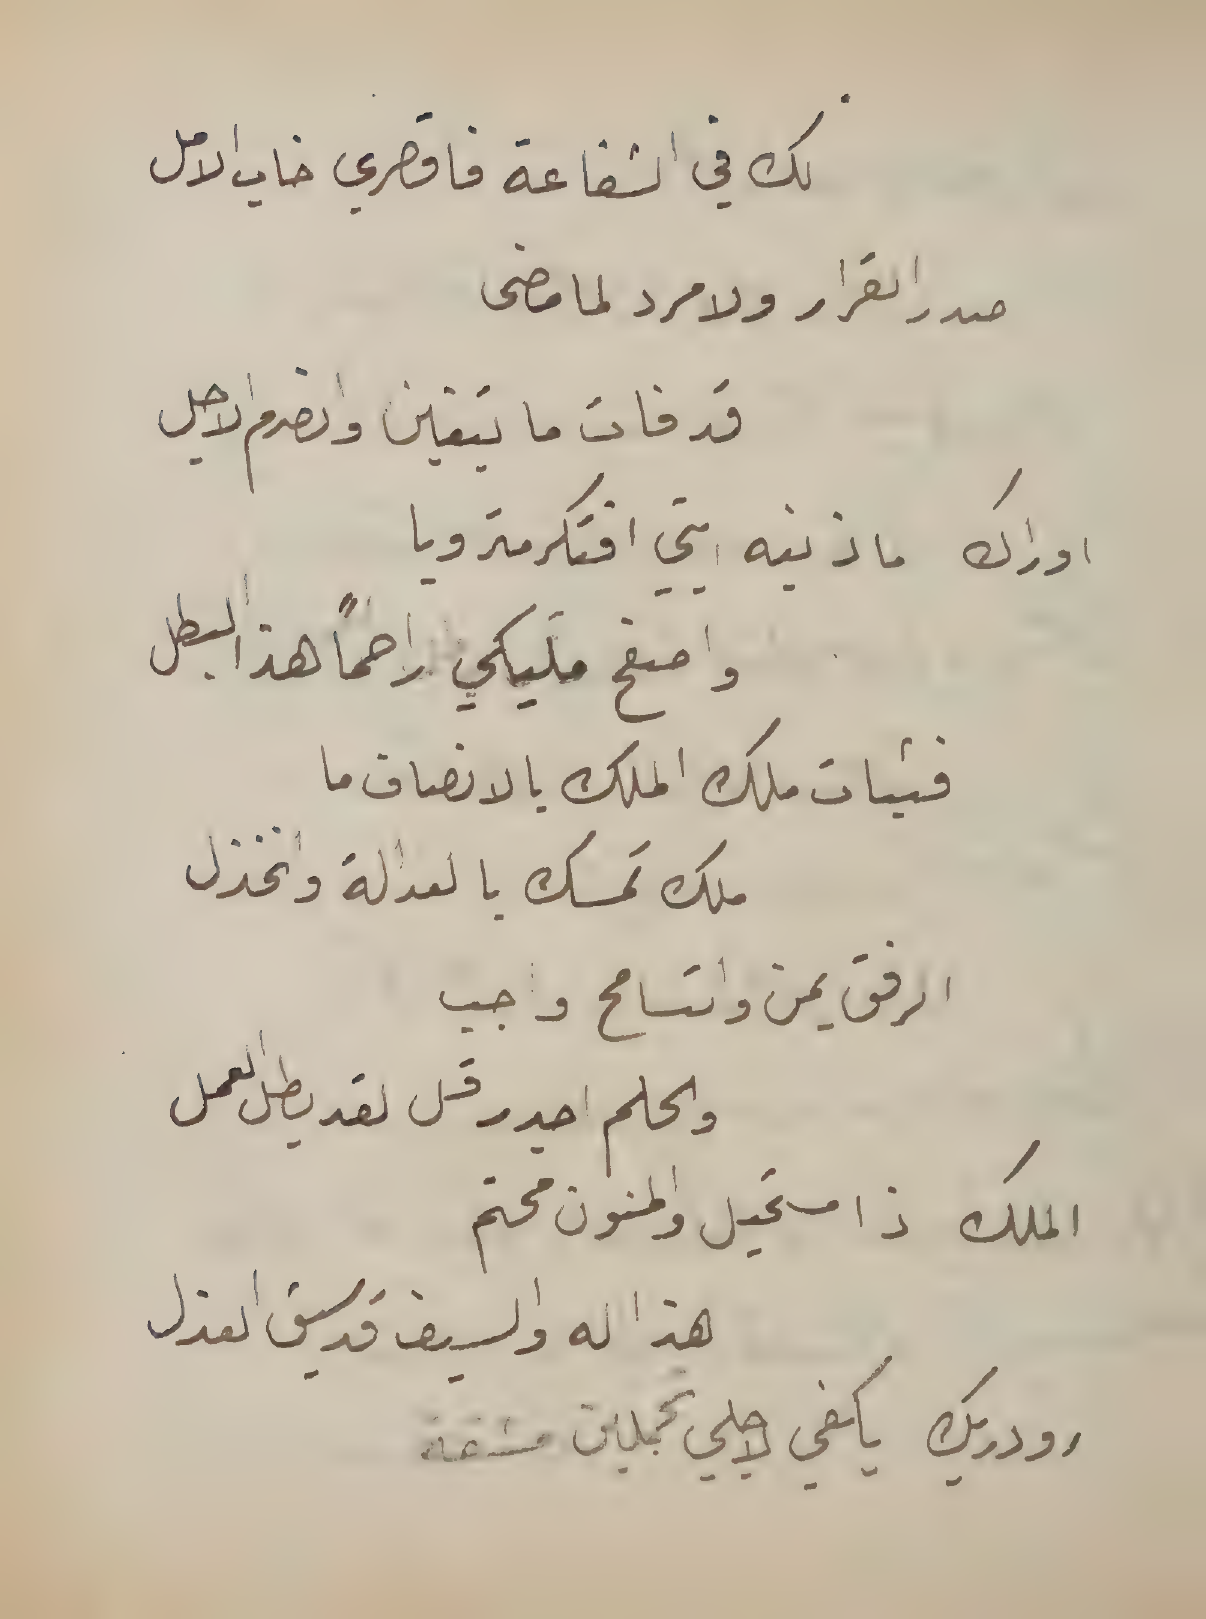 لك في الشفاعة فاقصري خاب الامل
صدر القرار ولا مرد لما مضى
قد فات ما تبغين وانصرم الاجل
اوراك ماذ نبه ابتي افتكر متر ويا
واصفح مليكي راحماً هذا البطل
فثبات ملك الملك بالانصاف ما
ملك تمسك بالعدالة وانخذل
الرفق يمن والتسامح واجب
والحلم اجدر قل لقد بطل العمل
الملك ذا مستحيل والمنون محتم
هذا له والسيف قد سبق العذل
رودريك يا كفي لاجلي تحملين مشقة